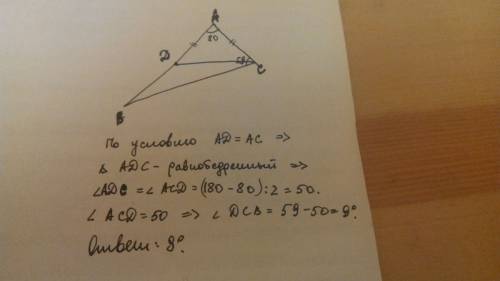 A
80
D
59
C
B
По условию AD = AC =>
△ ADC - равнобедренный =>
∠ADC = ∠ACD = (180 - 80) : 2 = 50.
∠ ACD = 50 => ∠ DCB = 59 - 50 = 9°.
Ответ: 9°.